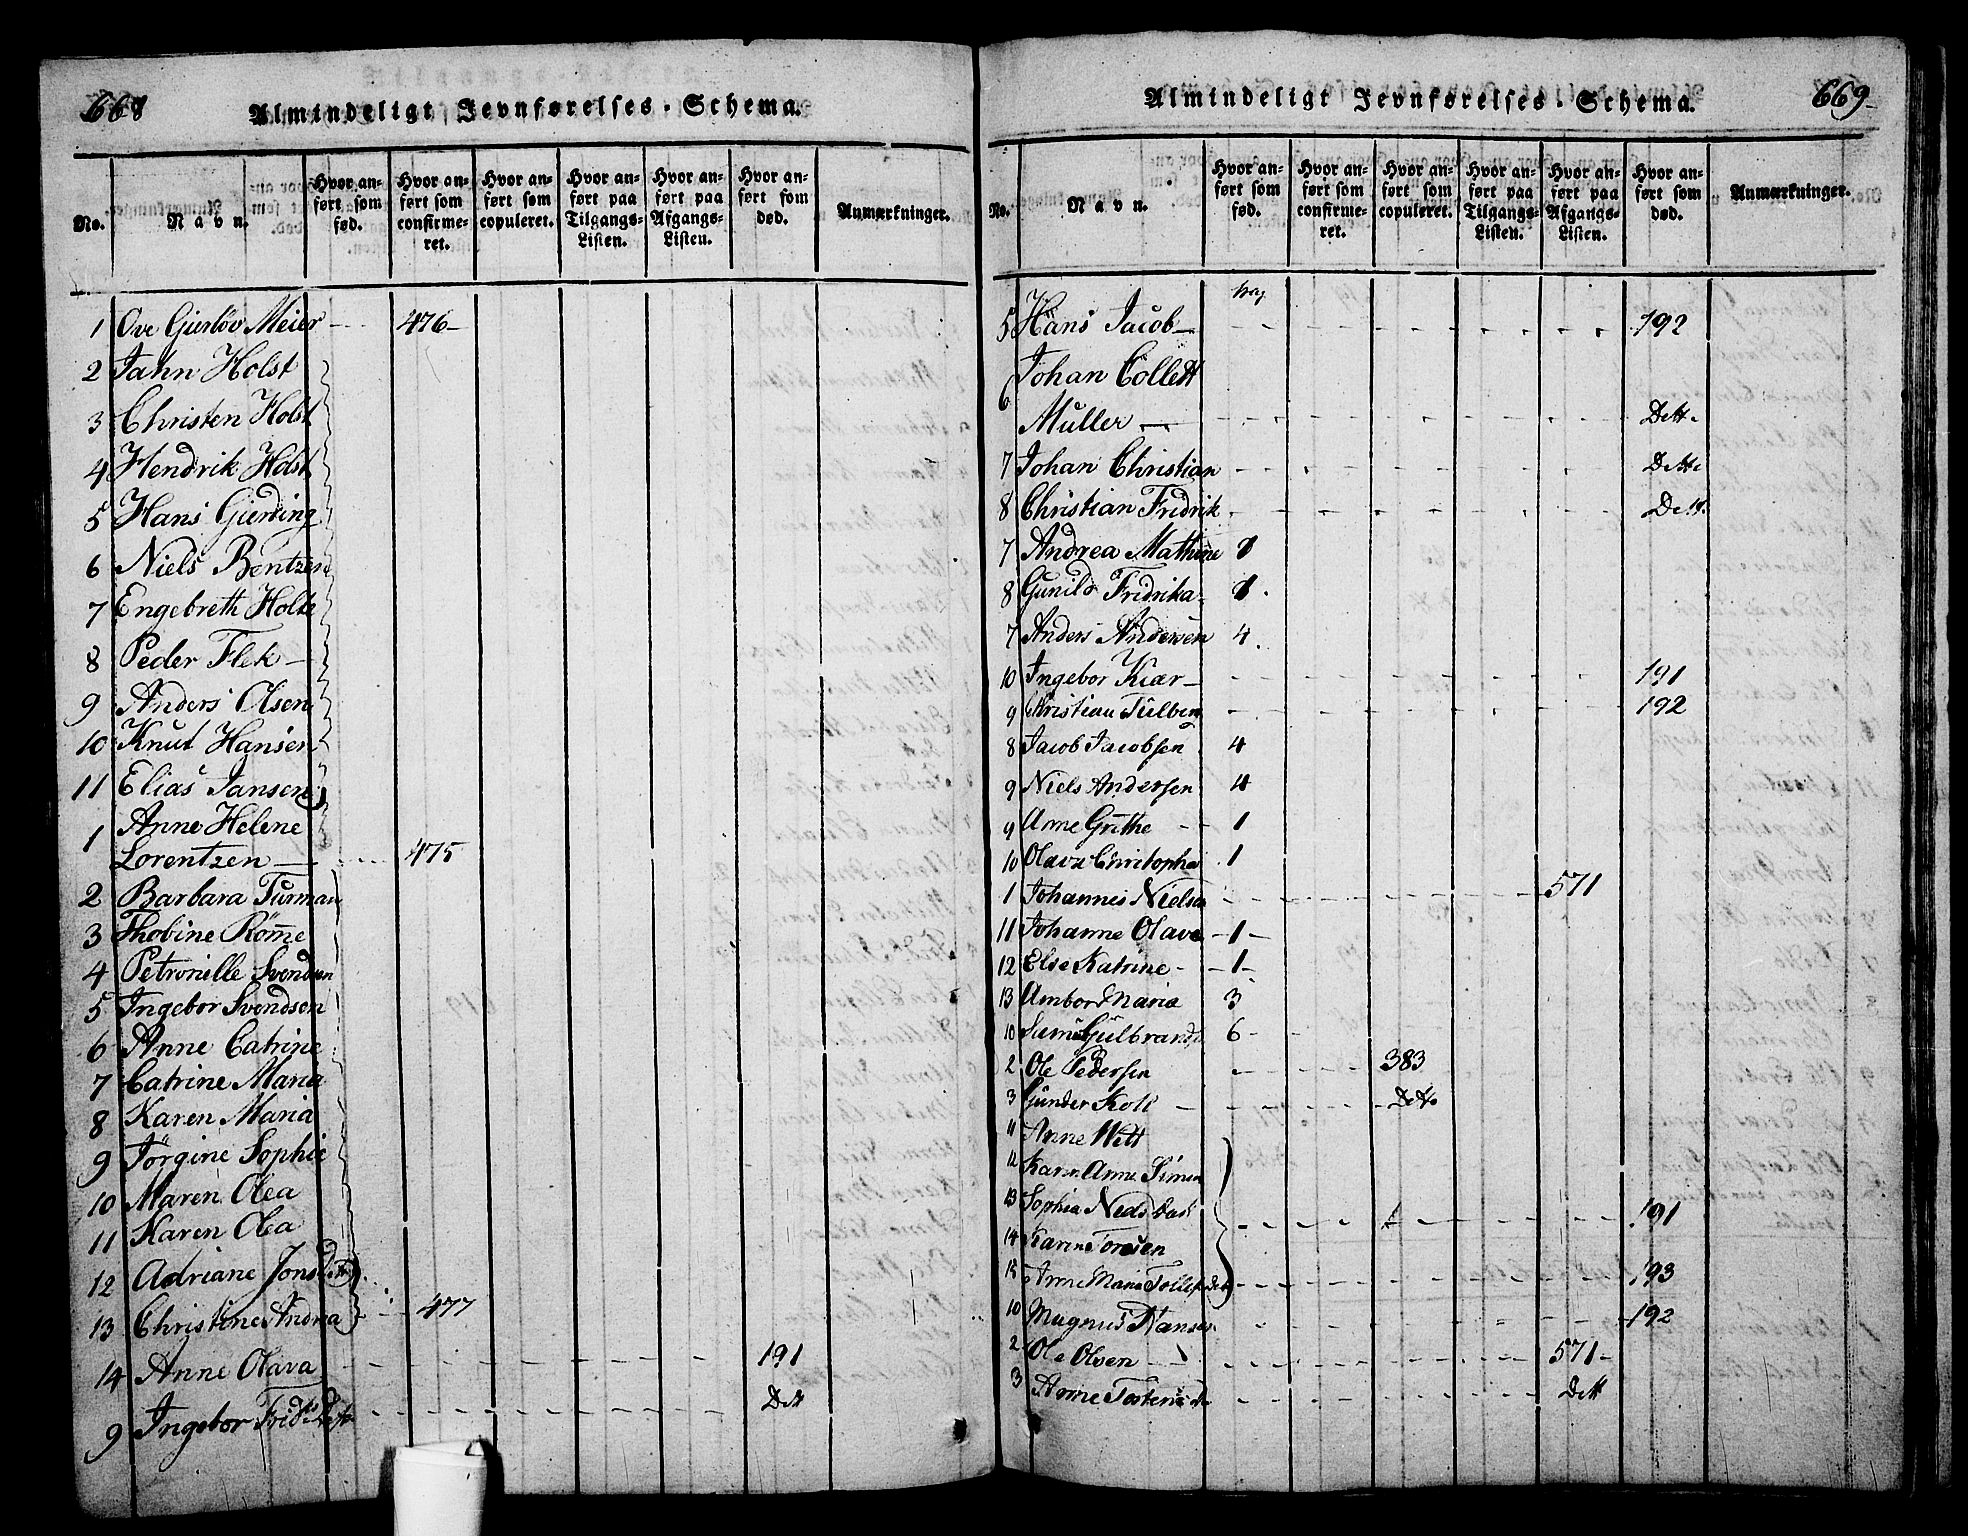 668
Almindeligt Jevnførelses-Schema.
No.
Navn.
Hvor anført som fød.
Hvor anført som confirmeret.
Hvor anført som copuleret.
Hvor anført paa Tilgangs-Listen.
Hvor anført paa Afgangs-Listen.
Hvor anført som død.
Anmærkninger.
1 Ove Gierløv Meier - - 476 -
2 Jahn Holst
3 Christen Holst
4 Hendrik Holst
5 Hans Gierding
6 Niels Bentzen
7 Engebreth Holte
8 Peder Flek -
9 Anders Olsen
10 Knut Hansen
11 Elias Jansen
1 Anne Helene
Lorentzen - 475
2 Barbara Turman
3 Thobine Røme
4 Petronelle Svendsen
5 Ingebor Svendsen
6 Anne Catrine
7 Catrine Maria
8 Karen Maria
9 Jørgine Sophie
10 Maren Olea
11 Karen Olea
12 Adriane Jons
13 Christine Andrea - 477
14 Anne Olava - - - - 191
9 Ingebor Frid - - - - Dett
669
Almindeligt Jevnførelses-Schema.
No.
Navn.
Hvor anført som fød.
Hvor anført som confirmeret.
Hvor anført som copuleret.
Hvor anført paa Tilgangs-Listen.
Hvor anført paa Afgangs-Listen.
Hvor anført som død.
Anmærkninger.
5 Hans Jacob - - - - 192
6 Johan Collett
Muller - - - - Dett
7 Johan Christian - - - - Dett
8 Christian Fridrik - - - - Dett
7 Andrea Mathine 1
8 Gunild Fridrika 1
7 Anders Andersen 4
10 Ingebor Kiær - - - - 191
9 Christian Tulben - - - - 192
8 Jacob Jacobsen 4
9 Niels Andersen 4
9 Anne Grethe - - 1
10 Olava Christopha 1
1 Johannes Nielsen - - - - 571
11 Johanne Olava - 1 -
12 Else Katrine - - 1 -
13 Ambor Maria 3
10 Gulbrands 6 -
2 Ole Pedersen - - - 383
3 Gunder Koll - - - - Detto
11 Anne Witt
12 Karen Anne Simen
13 Sophia Neds Datt - - - - 191
14 Karen Toresen
15 Anne Maria Tollefs - - - - 193
10 Magnus Hansen - - - - 192
2 Ole Olsen - - - - 571 -
3 Anne - - - - Dett